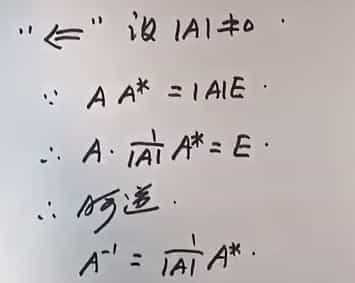 "⇐" 设 |A|≠0.
∵ A A* = |A|E.
∴ A· 1/|A| A* = E.
∴ A可逆.
A⁻¹ = 1/|A| A*.